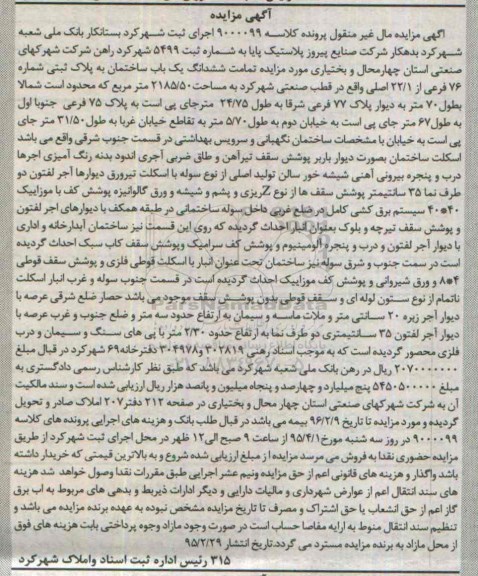 آگهی مزایده
آگهی مزایده مال غیر منقول پرونده کلاسه ۹۰۰۰۰۹۹ اجرای ثبت شهرکرد بستانکار بانک ملی شعبه
شهرکرد بدهکار شرکت صنایع پیروز پلاستیک پایا به شماره ثبت ۵۴۹۹ شهرکرد راهن شرکت شهرکهای
صنعتی استان چهارمحال و بختیاری مورد مزایده تمامت ششدانگ یک باب ساختمان به پلاک ثبتی شماره
۷۶ فرعی از ۲۲/۱ اصلی واقع در قطب صنعتی شهرکرد به مساحت ۲۱۸۵/۵۰ متر مربع که محدود است شمالا
بطول ۷۰ متر به دیوار پلاک ۷۷ فرعی شرقا به طول ۲۴/۷۵ مترجای پی است به پلاک ۷۵ فرعی جنوبا اول
به طول ۶۷ متر جای پی است به خیابان دوم به طول ۵/۷۰ متر به تقاطع خیابان غربا به طول ۳۱/۵۰ متر جای
پی است به خیابان با مشخصات ساختمان نگهبانی و سرویس بهداشتی در قسمت جنوب شرقی واقع می باشد
اسکلت ساختمان بصورت دیوار باربر پوشش سقف تیرآهن و طاق ضربی آجری اندود بدنه رنگ آمیزی اجرها
درب و پنجره بیرونی آهنی شیشه خور سالن تولید اصلی از نوع سوله با اسکلت تیرورق دیوارها آجر لفتون دو
طرف نما ۳۵ سانتیمتر پوشش سقف ها از نوع Zریزی و پشم و شیشه و ورق گالوانیزه پوشش کف با موزاییک
۴۰*۴۰ سیستم برق کشی کامل در ضلع غربی داخل سوله ساختمانی در طبقه همکف با دیوارهای اجر لفتون
و پوشش سقف تیرچه و بلوک بعنوان انبار احداث گردیده که روی این قسمت نیز ساختمان آبدارخانه و اداری
با دیوار آجر لفتون و درب و پنجره آلومینیوم و پوشش کف سرامیک وپوشش سقف کاب سبک احداث گردیده
است در سمت جنوب و شرق سوله نیز ساختمان تحت عنوان انبار با اسکلت قوطی فلزی و پوشش سقف قوطی
۴*۸ و ورق شیروانی و پوشش کف موزاییک احداث گردیده است در قسمت جنوب سوله و غرب انبار اسکلت
ناتمام از نوع ستون لوله ای و سقف قوطی بدون پوشش سقف موجود می باشد حصار ضلع شرقی عرصه با
دیوار آجر زیره ۲۰ سانتی متر و ملات ماسه و سیمان به ارتفاع حدود سه متر و ضلع جنوب و غرب عرصه با
دیوار آجر لفتون ۳۵ سانتیمتری دو طرف نما به ارتفاع حدود ۲/۳۰ متر با پی های سنگ و سیمان و درب
فلزی محصور گردیده است که به موجب اسناد رهنی ۳۰۲۸۱۹ و ۳۰۴۹۷۸ دفترخانه ۶۹ شهرکرد در قبال مبلغ
۲۰۷۰۰۰۰۰۰۰ ریال در رهن بانک ملی شعبه شهرکرد می باشد که طبق نظر کارشناس رسمی دادگستری به
مبلغ ۵۴۵۰۵۰۰۰۰۰ پنج میلیارد و چهارصد و پنجاه میلیون و پانصد هزار ریال ارزیابی شده است و سند مالکیت
آن به شرکت شهرکهای صنعتی استان چهار محال و بختیاری در صفحه ۲۱۲ دفتر ۲۰۷ املاک صادر و تحویل
گردیده و مورد مزایده تا تاریخ ۹۶/۲/۹ بیمه می باشد در قبال طلب بانک و هزینه های اجرایی پرونده های کلاسه
۹۰۰۰۰۹۹ در روز سه شنبه مورخ ۹۵/۴/۱ از ساعت ۹ صبح الی ۱۲ ظهر در محل اجرای ثبت شهرکرد از طریق
مزایده حضوری نقدا به فروش می رسد مزایده از مبلغ ارزیابی شده شروع و به بالاترین قیمتی که خریدار داشته
باشد واگذار و هزینه های قانونی اعم از حق مزایده ونیم عشر اجرایی طبق مقررات نقدا وصول خواهد شد هزینه
های سند انتقال اعم از عوارض شهرداری و مالیات دارایی و دیگر ادارات ذیربط و بدهی های مربوط به اب برق
گاز اعم از حق انشعاب یا حق اشتراک و مصرف تا تاریخ مزایده مشخص نبوده به عهده برنده مزایده می باشد و
تنظیم سند انتقال منوط به ارایه مفاصا حساب است در صورت وجود مازاد وجوه پرداختی بابت هزینه های فوق
از محل مازاد به برنده مزایده مسترد می گردد.تاریخ انتشار ۹۵/۲/۲۹
۳۱۵ رئیس اداره ثبت اسناد واملاک شهرکرد